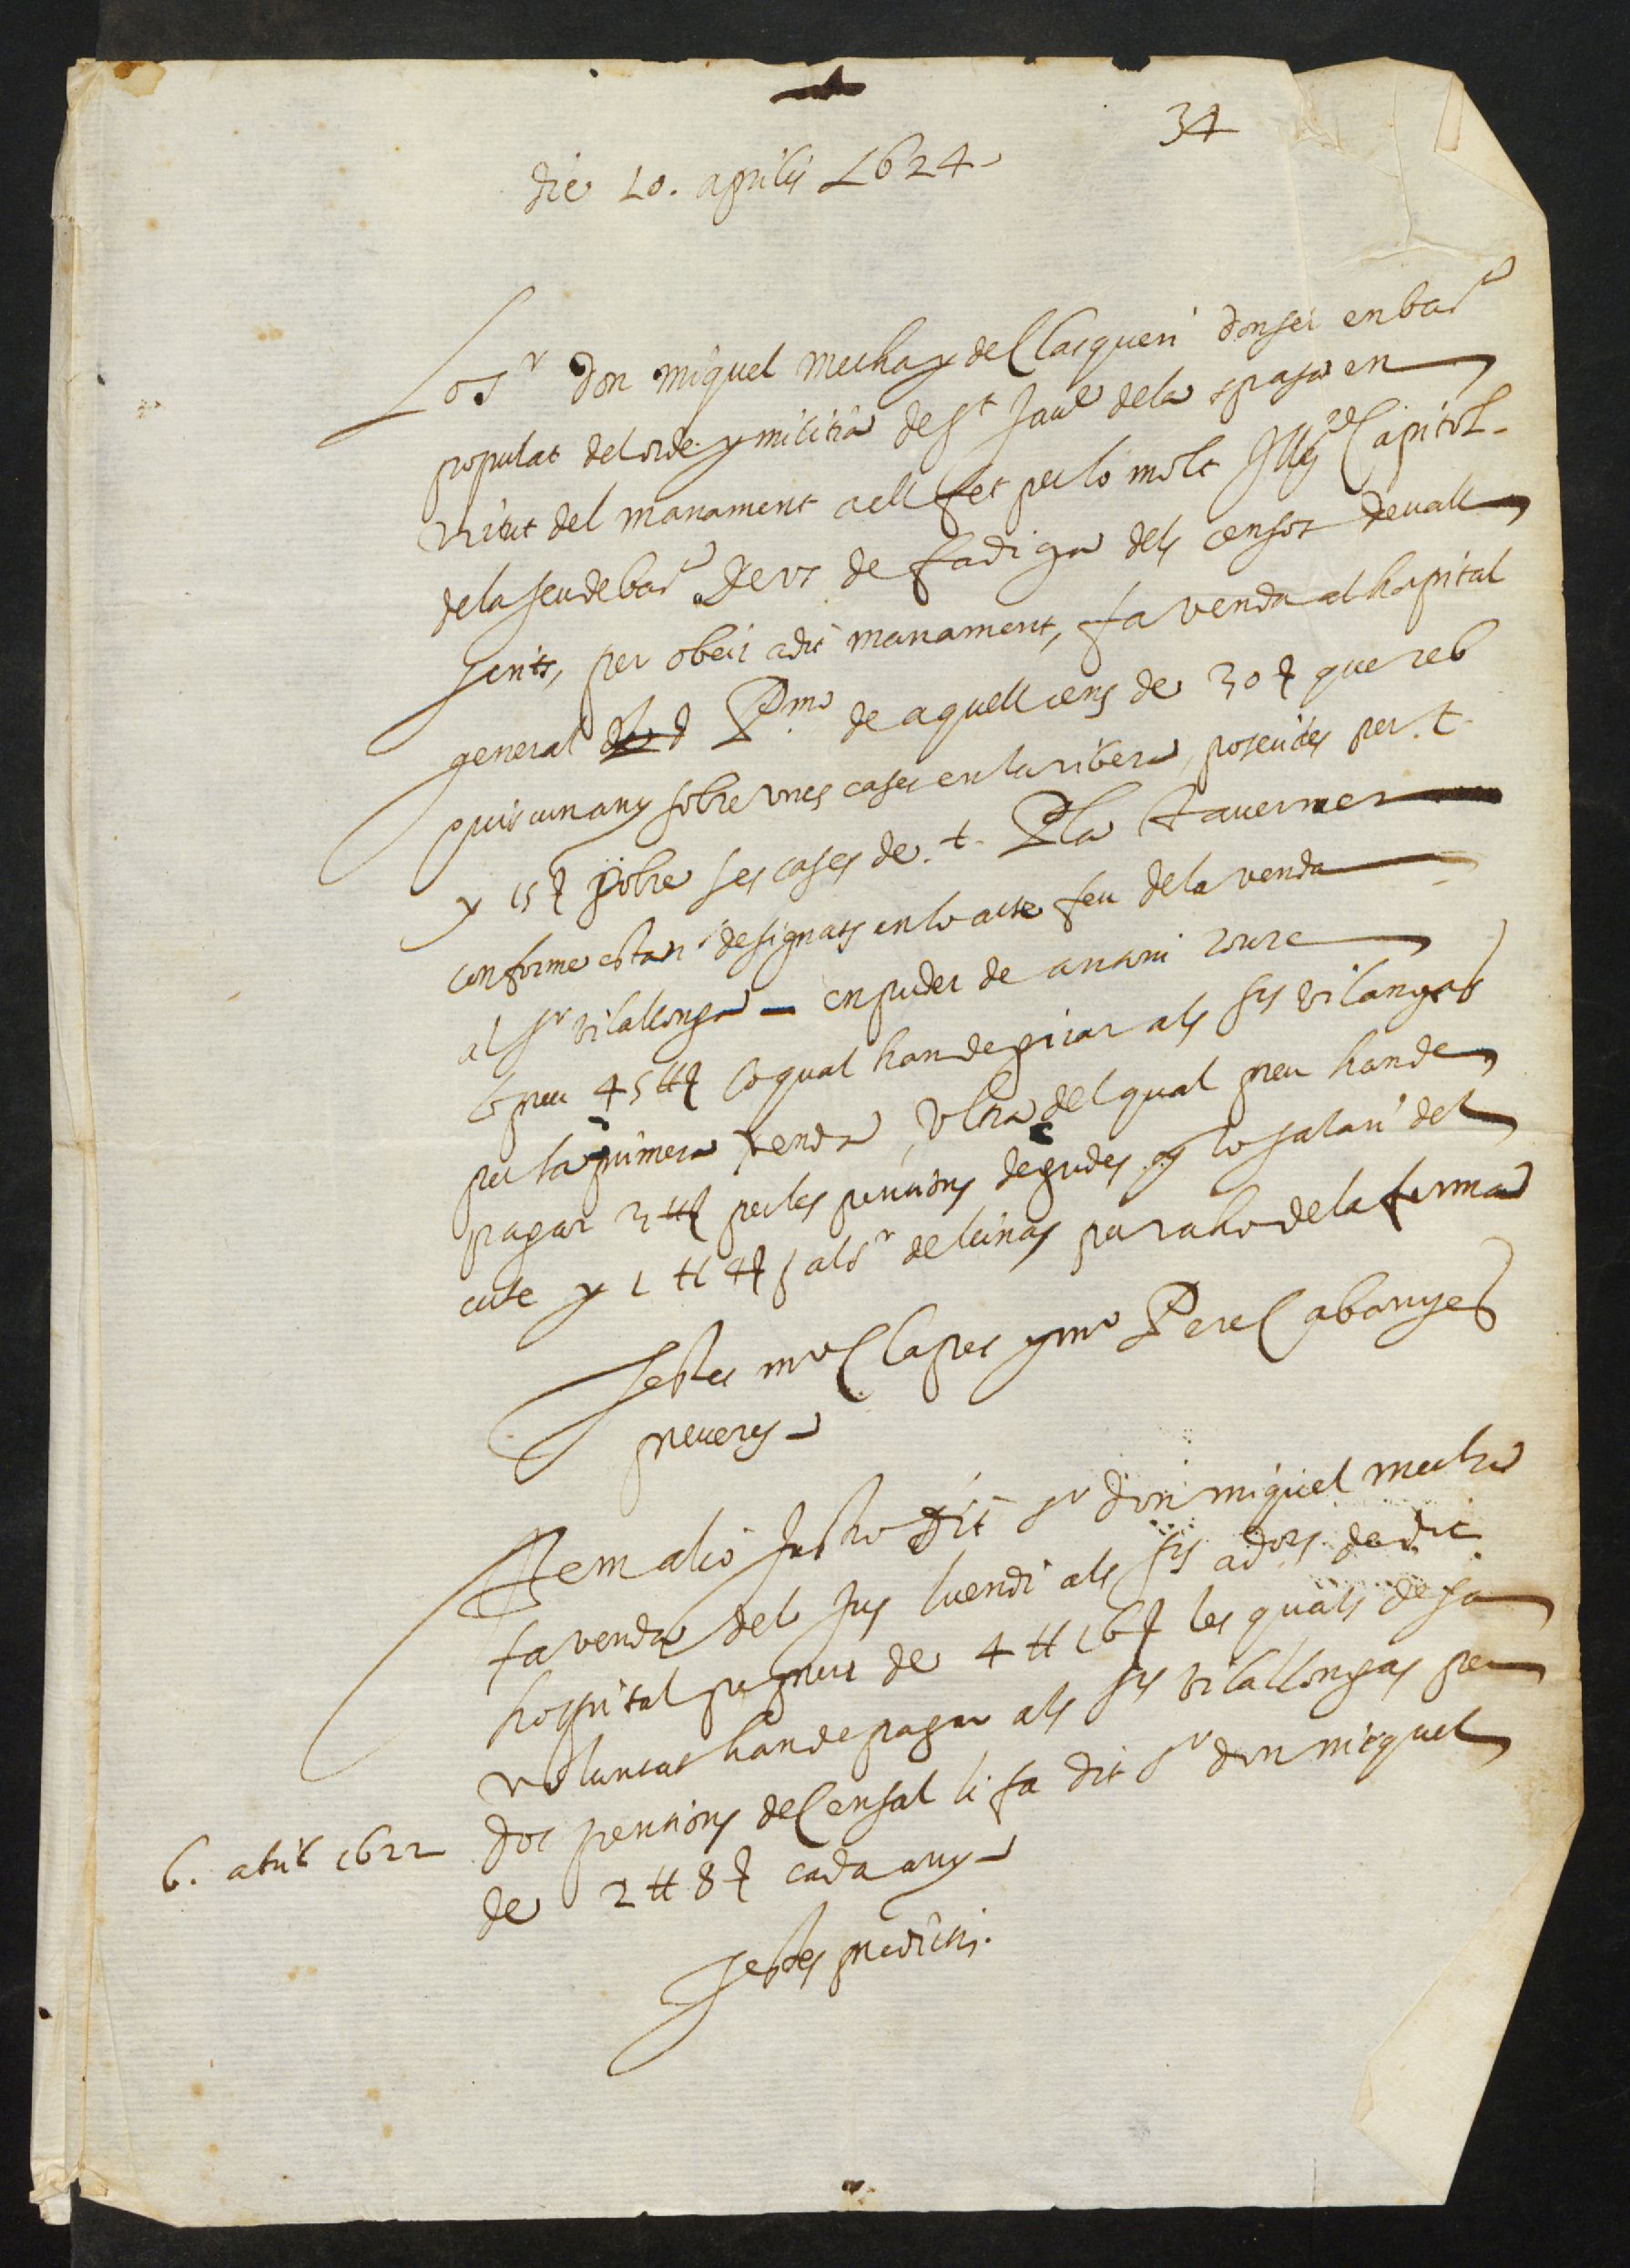 34
die 10. aprilis 1624
Lo Sr Don Miquel Mecha y de Clasqueri donsel en bar.ª
populat del orde y militia de St Jaume dela spasa en
virtut del manament aell fet per lo molt Illre Capitol
dela seu de bar.ª de fadiga dels censos devall
scrits, per obeir a dit manament, fa venda al hospital
general P.mo de aquell cens de 30 ß que reb
quiscun any sobre unes cases en la ribera, poseides per .t.
y 15 ß sobre les cases de .t. Pla taverner
conforme estan designats en lo acte feu dela venda
al Sr vilallonga en poder de antoni roure
lo preu 45 ₶ lo qual han de girar als Srs vilalongas
per la primera venda, ultra del qual preu han de
pagar 3 ₶ per les pentions degudes y lo salari del
acte y 1 ₶ 4 ß al Sr delinas per raho dela firma
Testes mo Clapes y mo Pere Cabanyes
preveres
Item alio lo dit Sr don miquel mecha
fa venda del Jus luendi als Srs adors de dit
hospital per preu de 4 ₶ 16 ß les quals de sa
voluntat han de pagar als Srs vilallongas per
dos pentions del Censal li fa dit Sr don miquel
6. abril 1622
de 2 ₶ 8 ß cada any
Testes predicti.